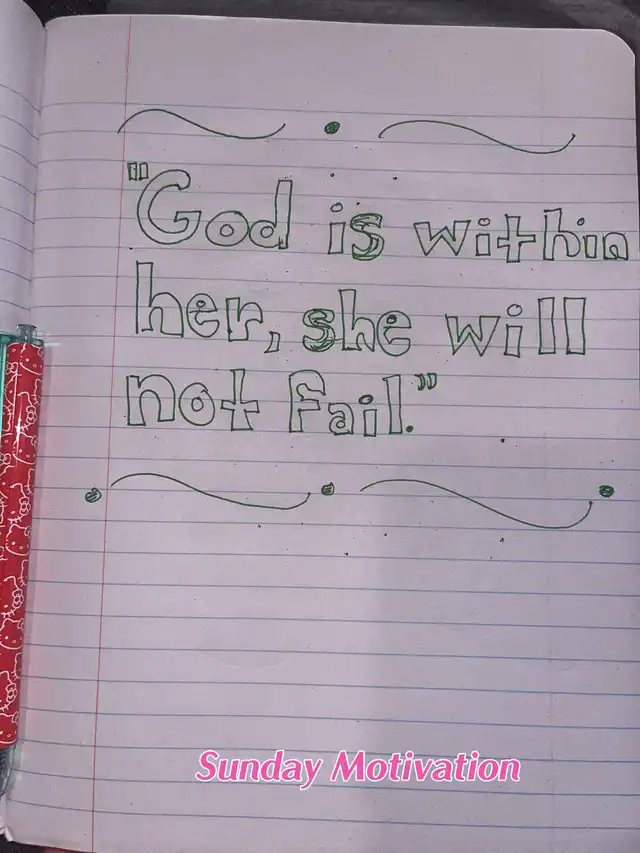 "God is within
her, she will
not fail."
Sunday Motivation